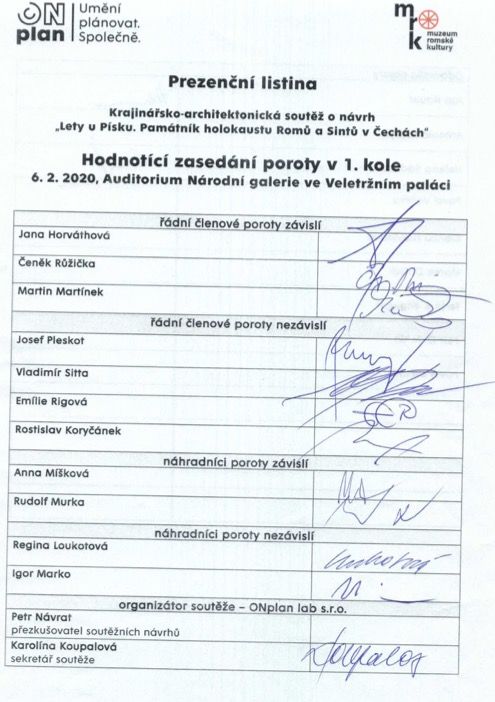 ON plan
Umění
plánovat.
Společně.
mrk
muzeum
romské
kultury
Prezenční listina
Krajinářsko-architektonická soutěž o návrh
„Lety u Písku. Památník holokaustu Romů a Sintů v Čechách“
Hodnotící zasedání poroty v 1. kole
6. 2. 2020, Auditorium Národní galerie ve Veletržním paláci
řádní členové poroty závislí
Jana Horváthová
Čeněk Růžička
Martin Martínek
řádní členové poroty nezávislí
Josef Pleskot
Vladimír Sitta
Emílie Rigová
Rostislav Koryčánek
náhradníci poroty závislí
Anna Míšková
Rudolf Murka
náhradníci poroty nezávislí
Regina Loukotová
Igor Marko
organizátor soutěže – ONplan lab s.r.o.
Petr Návrat
přezkušovatel soutěžních návrhů
Karolína Koupalová
sekretář soutěže